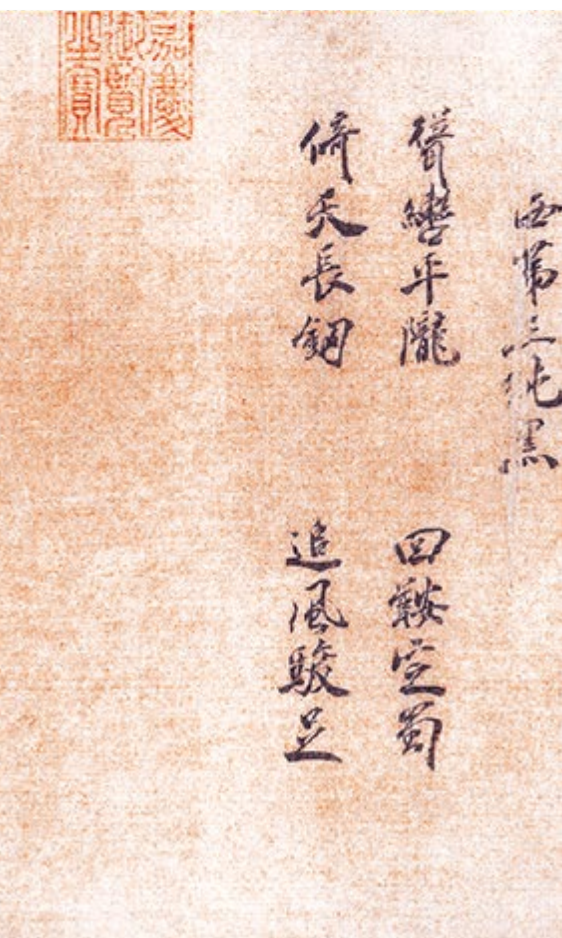 西第三純黑
聳轡平隴 回鞍定蜀
倚天長劍 追風駿足
嘉慶
御覽
之寶